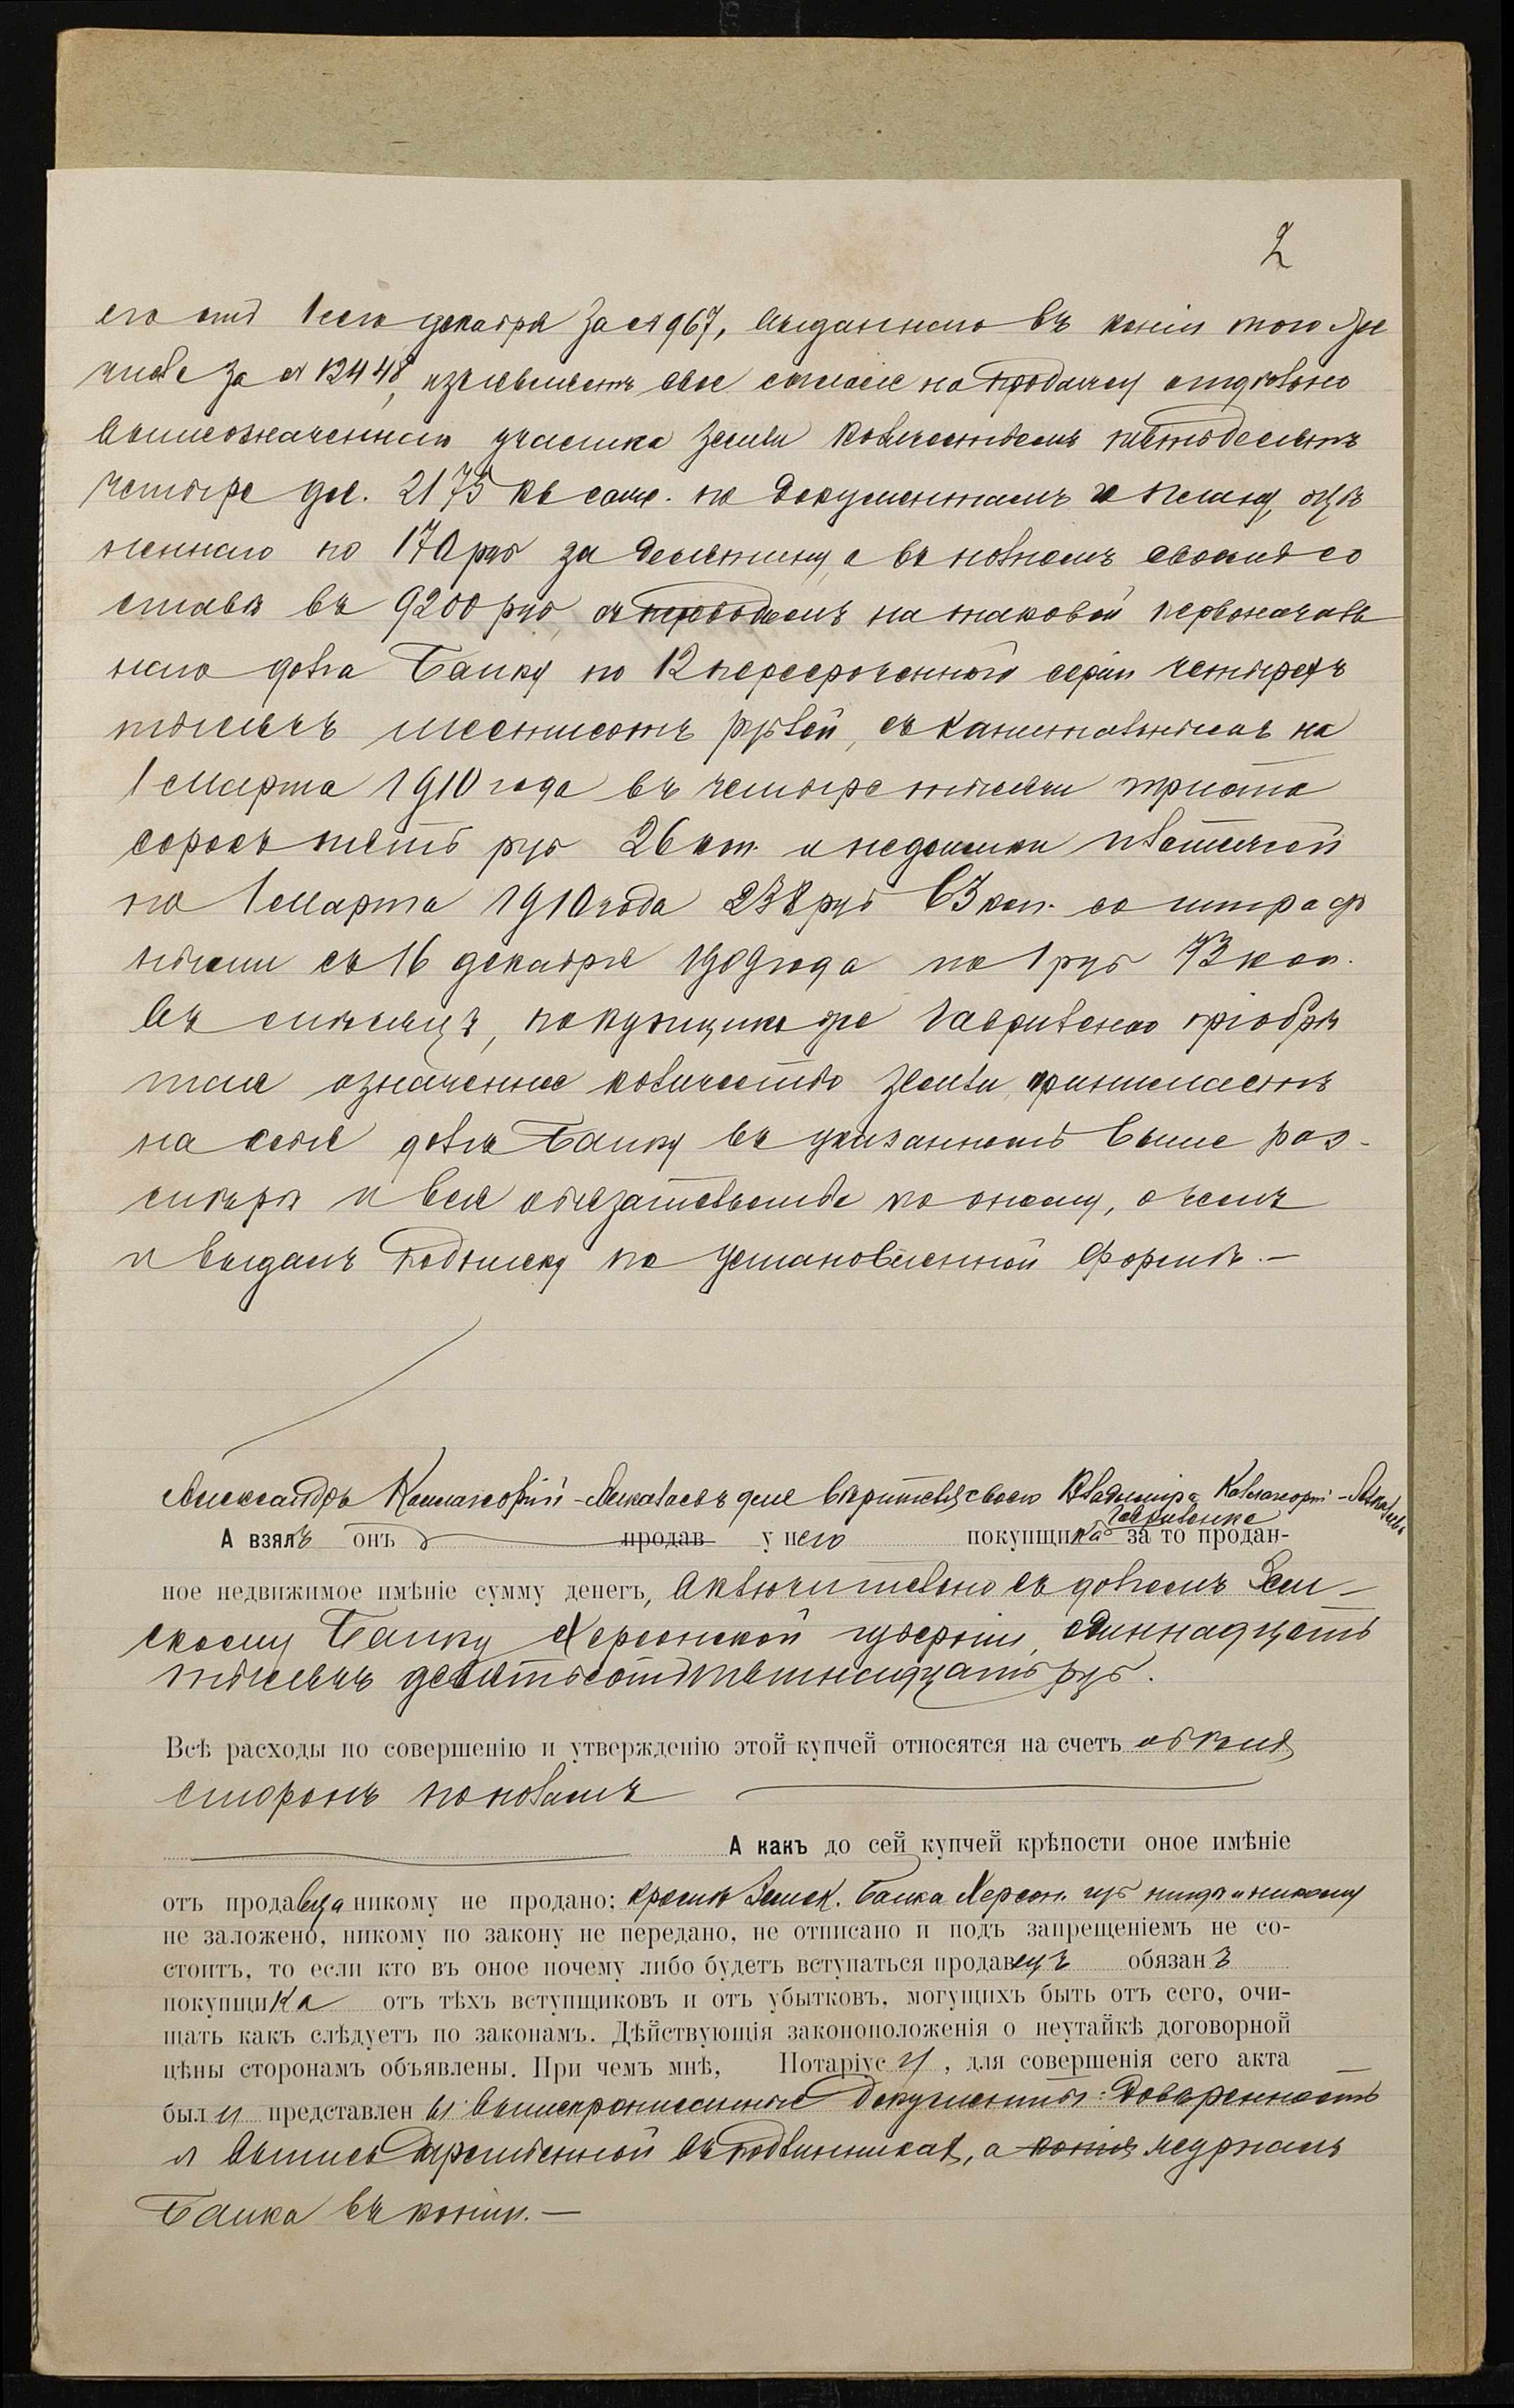 2
его отъ 1сего декабря за № 967, выданнаго въ копіи того же
числа за № 12448, изъявляетъ свое согласіе на продажу отдѣльно
вышеозначеннаго участка земли количествомъ пятьдесятъ
четыре дес. 2175 кв саж. по документамъ и плану, оцѣ
неннаго по 170 руб за десятину, а въ полномъ своемъ со
ставѣ въ 9200 руб, съ переводомъ на таковой первоначаль
наго долга Банку по 12 пересроченной серіи четырехъ
тысячъ шестисотъ рублей, въ капитальныхъ на
1 Марта 1910 года въ четыре тысячи триста
сорокъ пять руб 26 коп. и недоимки платежей
по 1 Марта 1910 года 238 руб 63 коп. со штраф
ными съ 16 декабря 1909 года по 1 руб 73 коп.
въ мѣсяцъ, покупщикъ же Гавриленко пріобрѣ
тая означенное количество земли, принимаетъ
на себя долгъ Банку въ указанномъ выше раз-
мѣрѣ и всѣ обязательства по оному, о чемъ
и выдалъ подписку по установленной формѣ. —
Александръ -Лекалаевъ для вѣрителя своего Владиміра
Гавриленко
А взялъ онъ продав у него покупщика за то продан-
ное недвижимое имѣніе сумму денегъ, включительно съ долгомъ Зем-
скому Банку Херсонской губерніи, одиннадцать
тысячъ девятьсотъ руб.
Всѣ расходы по совершенію и утвержденію этой купчей относятся на счетъ обѣихъ
сторонъ пополамъ
А какъ до сей купчей крѣпости оное имѣніе
отъ продавца никому не продано; кромѣ Земск. Банка Херсон. губ нигдѣ и никому
не заложено, никому по закону не передано, не отписано и подъ запрещеніемъ не со-
стоитъ, то если кто въ оное почему либо будетъ вступаться продавецъ обязанъ
покупщика отъ тѣхъ вступщиковъ и отъ убытковъ, могущихъ быть отъ сего, очи-
щать какъ слѣдуетъ по законамъ. Дѣйствующія законоположенія о неутайкѣ договорной
цѣны сторонамъ объявлены. При чемъ мнѣ, Нотаріусу, для совершенія сего акта
были представлены вышепрописанные документы: довѣренность
и выпись крѣпостной въ подлинникахъ, а копія журналъ
Банка въ копіи. —